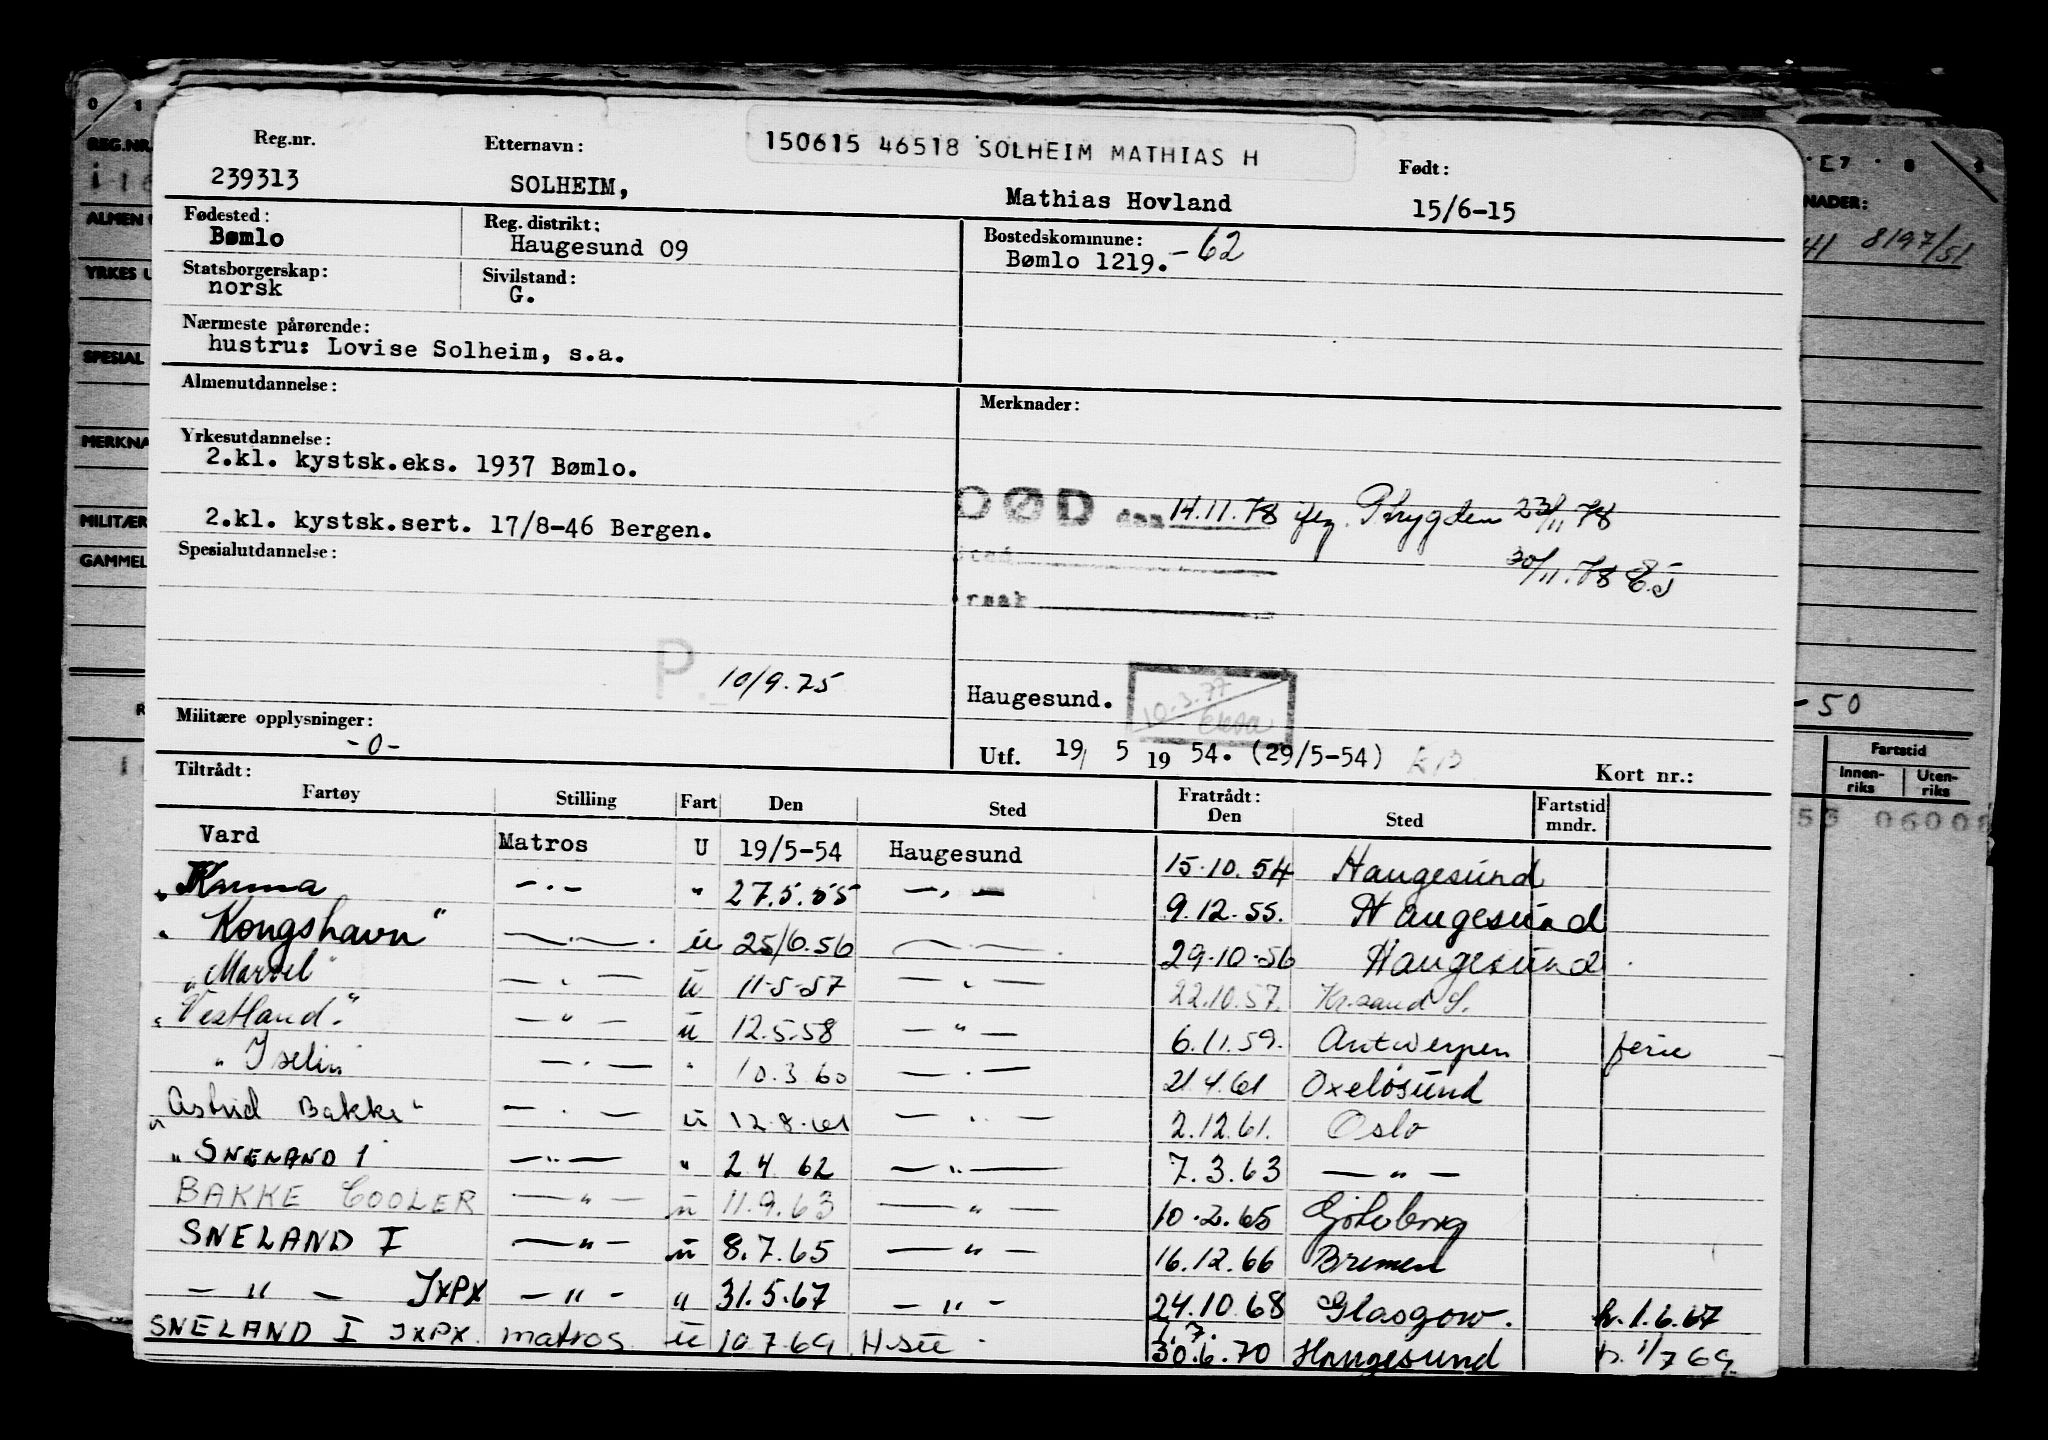 150615 46518 SOLHEIM MATHIAS H
Reg.nr. Etternavn: Født:
239313 SOLHEIM, Mathias Hovland 15/6-15
Fødested: Reg. distrikt: Bostedskommune:
Bømlo Haugesund 09 Bømlo 1219. -62
Statsborgerskap: Sivilstand:
norsk G.
Nærmeste pårørende:
hustru: Lovise Solheim, s.a.
Almenutdannelse: Merknader:
Yrkesutdannelse:
2.kl. kystsk.eks. 1937 Bømlo.
2.kl. kystsk.sert. 17/8-46 Bergen.
DØD den 14.11.78 Trygden 23/11 78
30/11.78 EJ
Spesialutdannelse:
P. 10/9.75
Haugesund. 10.3.77
Militære opplysninger:
-0-
Utf. 19/ 5 19 54. (29/5-54) Kort nr.:
Tiltrådt: Fratrådt:
Fartøy Stilling Fart Den Sted Den Sted Fartstid mndr.
Vard Matros U 19/5-54 Haugesund 15.10.54 Haugesund
" Karma -.- " 27.5.55 -.- 9.12.55. Haugesund
" Kongshavn" -.- ü 25/6.56 -.- 29.10.56 Haugesund
" Marvel" -.- ü 11-5-57 -.- 22.10.57. Kr.sand S.
" Vestland." -"- ü 12.5.58 -"- 6.11.59. Antwerpen ferie
" Iselin" -.- " 10.3 60 -.- 21.4.61 Oxelösund
" Astrid Bakke" -.- ü 12.8.61 -.- 2.12.61. Oslo
" SNELAND 1 -"- " 2 4 62 -"- 7.3.63 -"-
BAKKE COOLER -"- ü 11.9.63 -"- 10.2.65 Göteborg
SNELAND I -"- ü 8.7.65 -"- 16.12.66 Bremen
-"- JXPX -"- " 31.5.67 -"- 24.10.68 Glasgow. h.1.6.67
SNELAND I JXPX. matros ü 10.7.69 H.su 30.6.70 Haugesund h. 1/7 69.
0 1
REG.NR.
ALMEN
YRKES U
SPESIAL
MERKNA
MILITÆR
GAMMEL
E7 8
NADER:
41 8197/51
-50
Fartstid
Innen-riks Uten-riks
53 06008